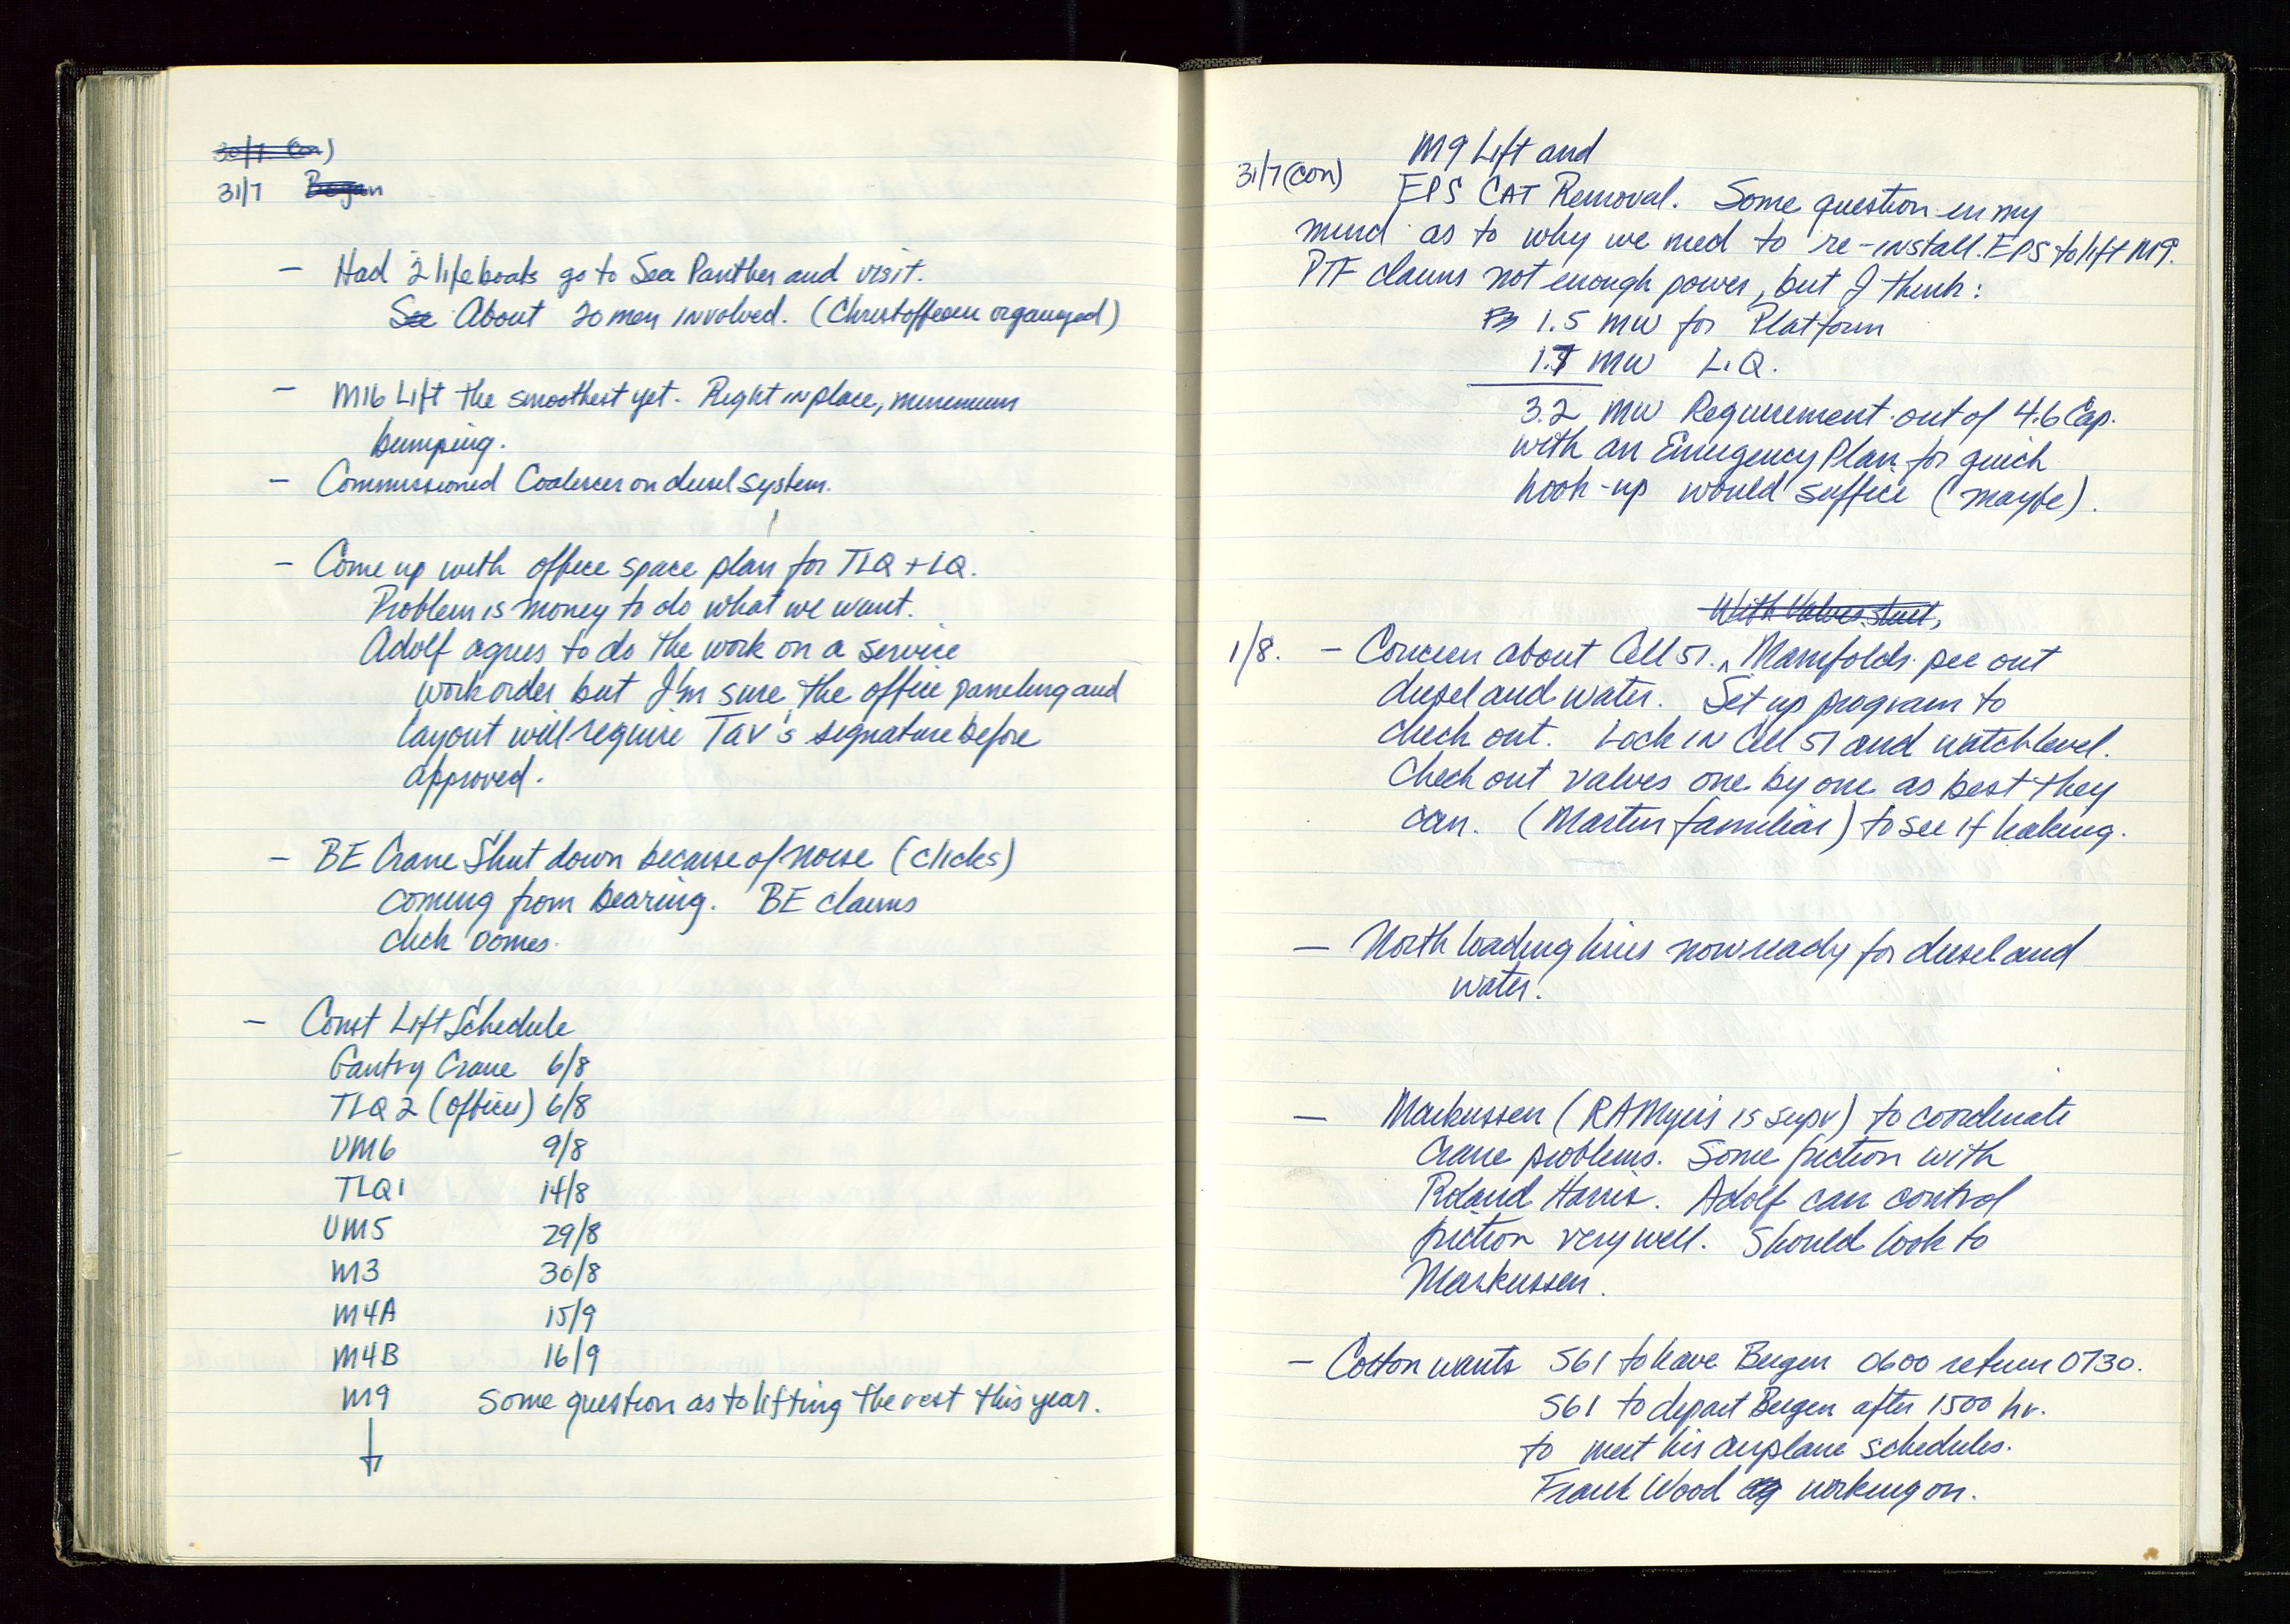 30/7 (Con)
31/7 Began
- Had 2 lifeboats go to Sea Panther and visit.
See About 20 men involved. (Christoffersen organized)
- M16 Lift the smoothest yet. Right in place, minimum
bumping.
- Commissioned Coalescer on diesel system.
- Come up with office space plan for TLQ + LQ.
Problem is money to do what we want.
Adolf agrees to do the work on a service
work order but I'm sure the office paneling and
layout will require TaV's signature before
approved.
- BE Crane Shut down because of noise (clicks)
coming from bearing. BE claims
click comes.
- Const Lift Schedule
Gantry Crane 6/8
TLQ 2 (offices) 6/8
UM6 9/8
TLQ1 14/8
UM5 29/8
M3 30/8
M4A 15/9
M4B 16/9
M9 Some question as to lifting the rest this year.
M9 Lift and
31/7 (con) EPS CAT Removal. Some question in my
mind as to why we need to re-install EPS to lift M9.
PTF claims not enough power, but I think:
1.5 MW for Platform
1.7 MW L.Q.
3.2 MW Requirement out of 4.6 Cap.
with an Emergency Plan for quick
hook-up would suffice (maybe).
With Valves shut,
1/8. - Concern about Cell 51. ^ Manifolds pee out
diesel and water. Set up program to
check out. Lock in Cell 51 and watch level.
Check out valves one by one as best they
can. (Martin familiar) to see if leaking.
- North loading lines now ready for diesel and
water.
- Markussen (RA Myers is supv) to coordinate
Crane problems. Some friction with
Roland Harris. Adolf can control
friction very well. Should look to
Markussen.
- Colton wants S61 to leave Bergen 0600 return 0730.
S61 to depart Bergen after 1500 hr.
to meet his airplane schedules.
Frank Wood working on.